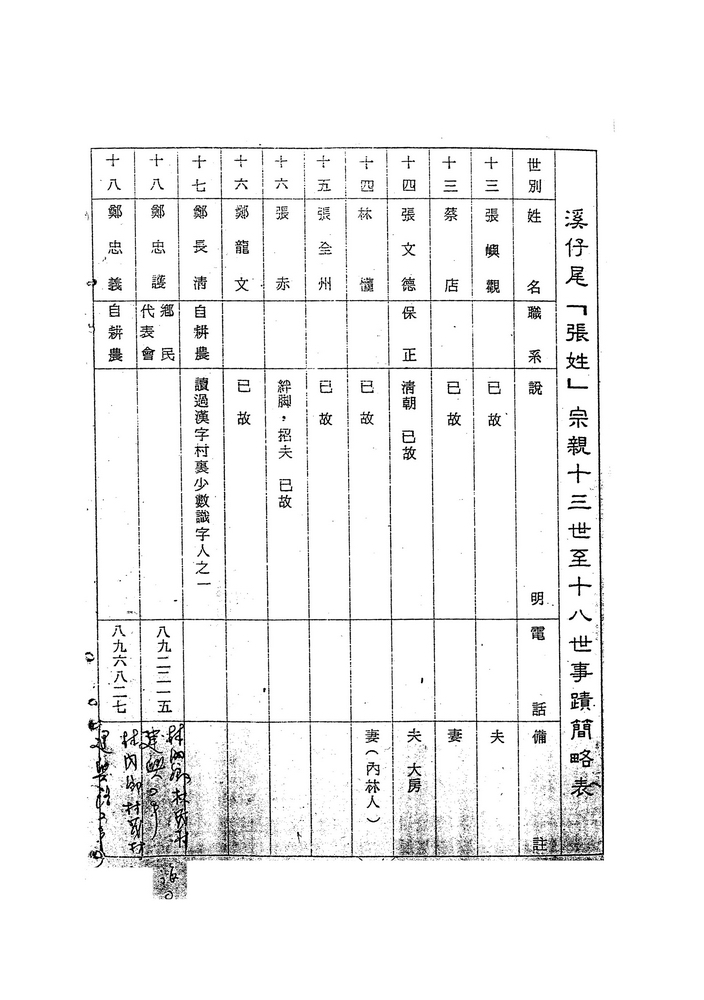 溪仔尾「張姓」宗親十三世至十八世事蹟簡略表
世別 姓名 職系 說明 電話 備註
十三 張嶼觀 已故 夫
十三 蔡店 已故 妻
十四 張文德 保正 清朝 已故 夫 大房
十四 林 已故 妻(內林人)
十五 張全州 已故
十六 張赤 絆脚,招夫 已故
十六 鄭龍文 已故
十七 鄭長清 自耕農 讀過漢字村裏少數識字人之一
十八 鄭忠護 鄉民代表會 八九二二一五 林內鄉林茂村
十八 鄭忠義 自耕農 八九六八二七 林內鄉林茂村